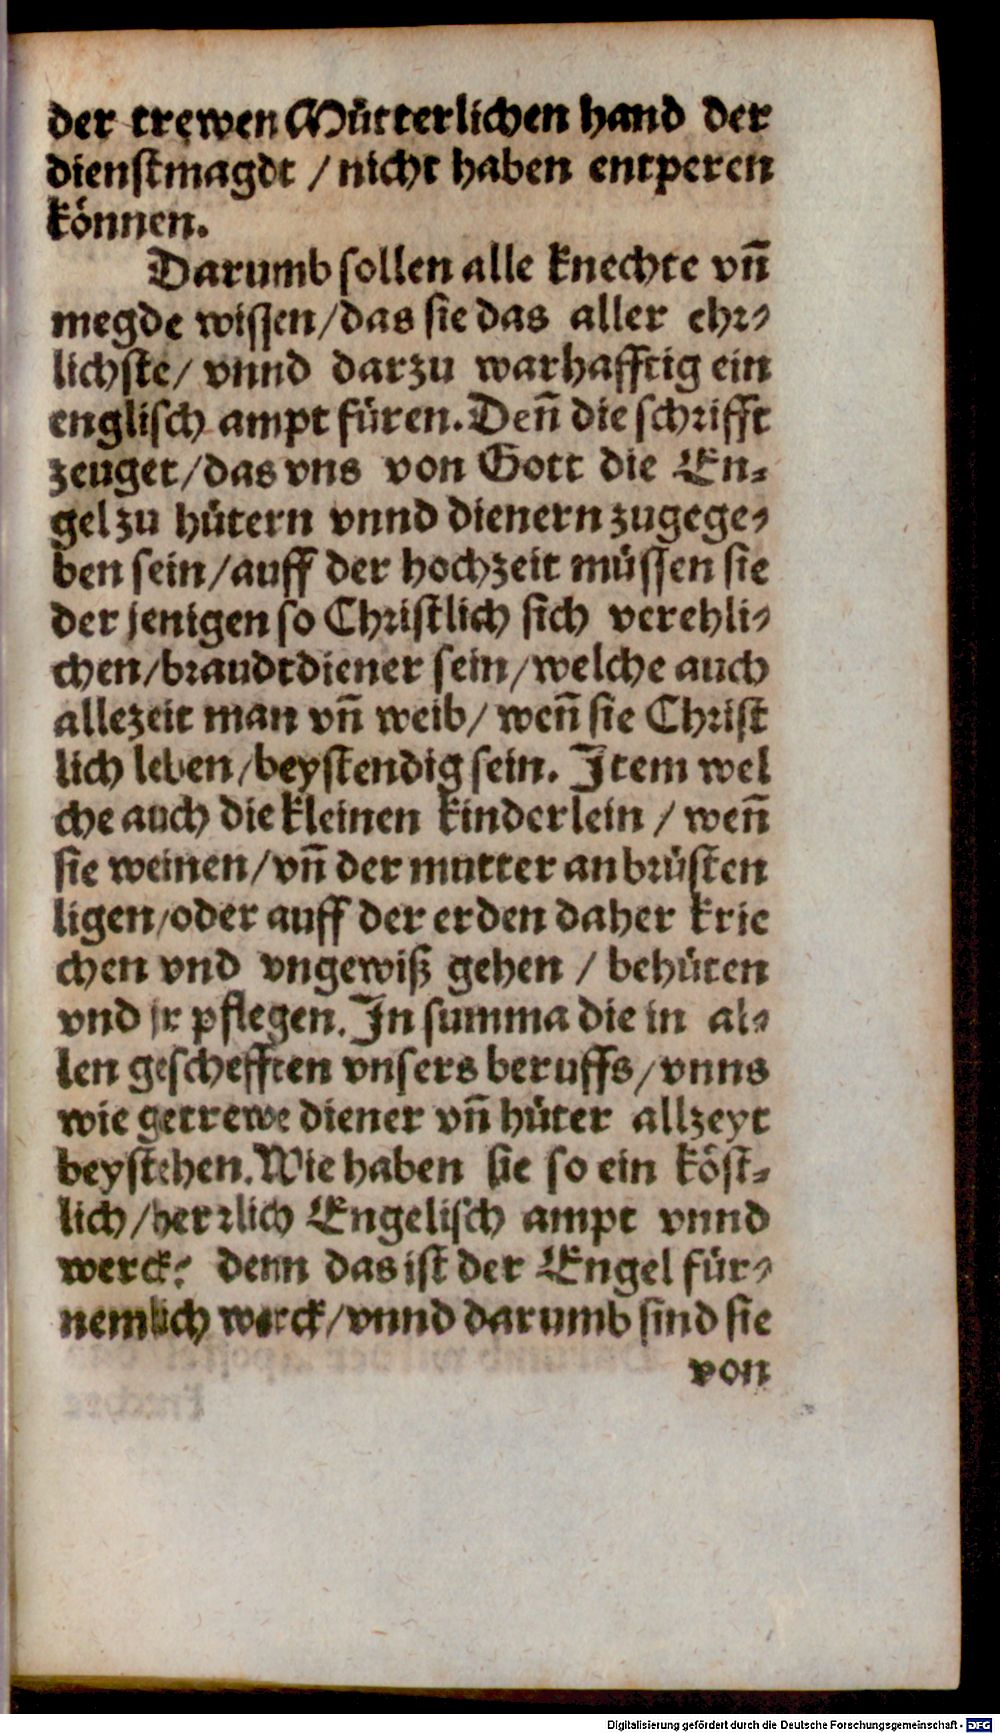 der trewen Mütterlichen hand der
dienstmagdt / nicht haben entperen
können.
Darumb sollen alle knechte vn̄
megde wissen/das sie das aller ehr⸗
lichste/ vnnd darzu warhafftig ein
englisch ampt füren. Den̄ die schrifft
zeuget/das vns von Gott die En⸗
gel zu hütern vnnd dienern zugege⸗
ben sein/auff der hochzeit müssen sie
der jenigen so Christlich sich verehli⸗
chen/braudtdiener sein/welche auch
allezeit man vn̄ weib/ wen̄ sie Christ
lich leben/beystendig sein. Item wel
che auch die kleinen kinderlein / wen̄
sie weinen/vn̄ der mutter an brüsten
ligen/oder auff der erden daher krie
chen vnd vngewiß gehen / behüten
vnd jr pflegen. In summa die in al⸗
len geschefften vnsers beruffs/vnns
wie getrewe diener vn̄ hüter allzeyt
beystehen. Wie haben sie so ein köst⸗
lich/herrlich Engelisch ampt vnnd
werck? denn das ist der Engel für⸗
nemlich werck/vnnd darumb sind sie
von
Digitalisierung gefördert durch die Deutsche Forschungsgemeinschaft - DFG